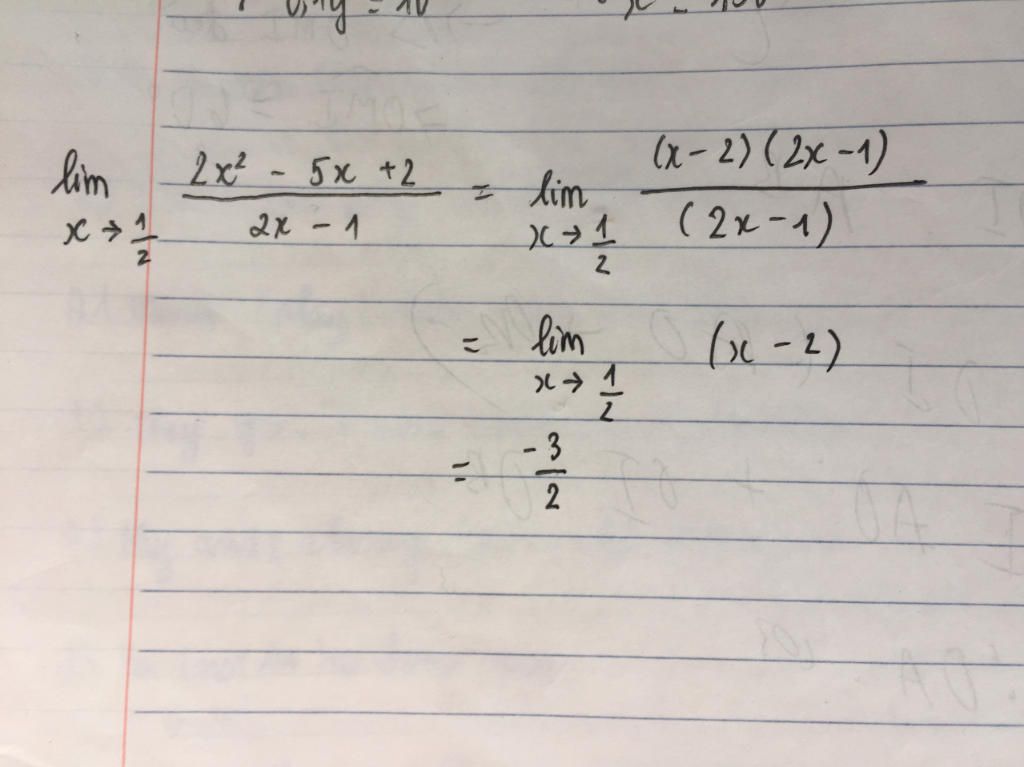 lim x→1/2 (2x² - 5x + 2)/(2x - 1) = lim x→1/2 (x - 2)(2x - 1)/(2x - 1)
= lim x→1/2 (x - 2)
= -3/2